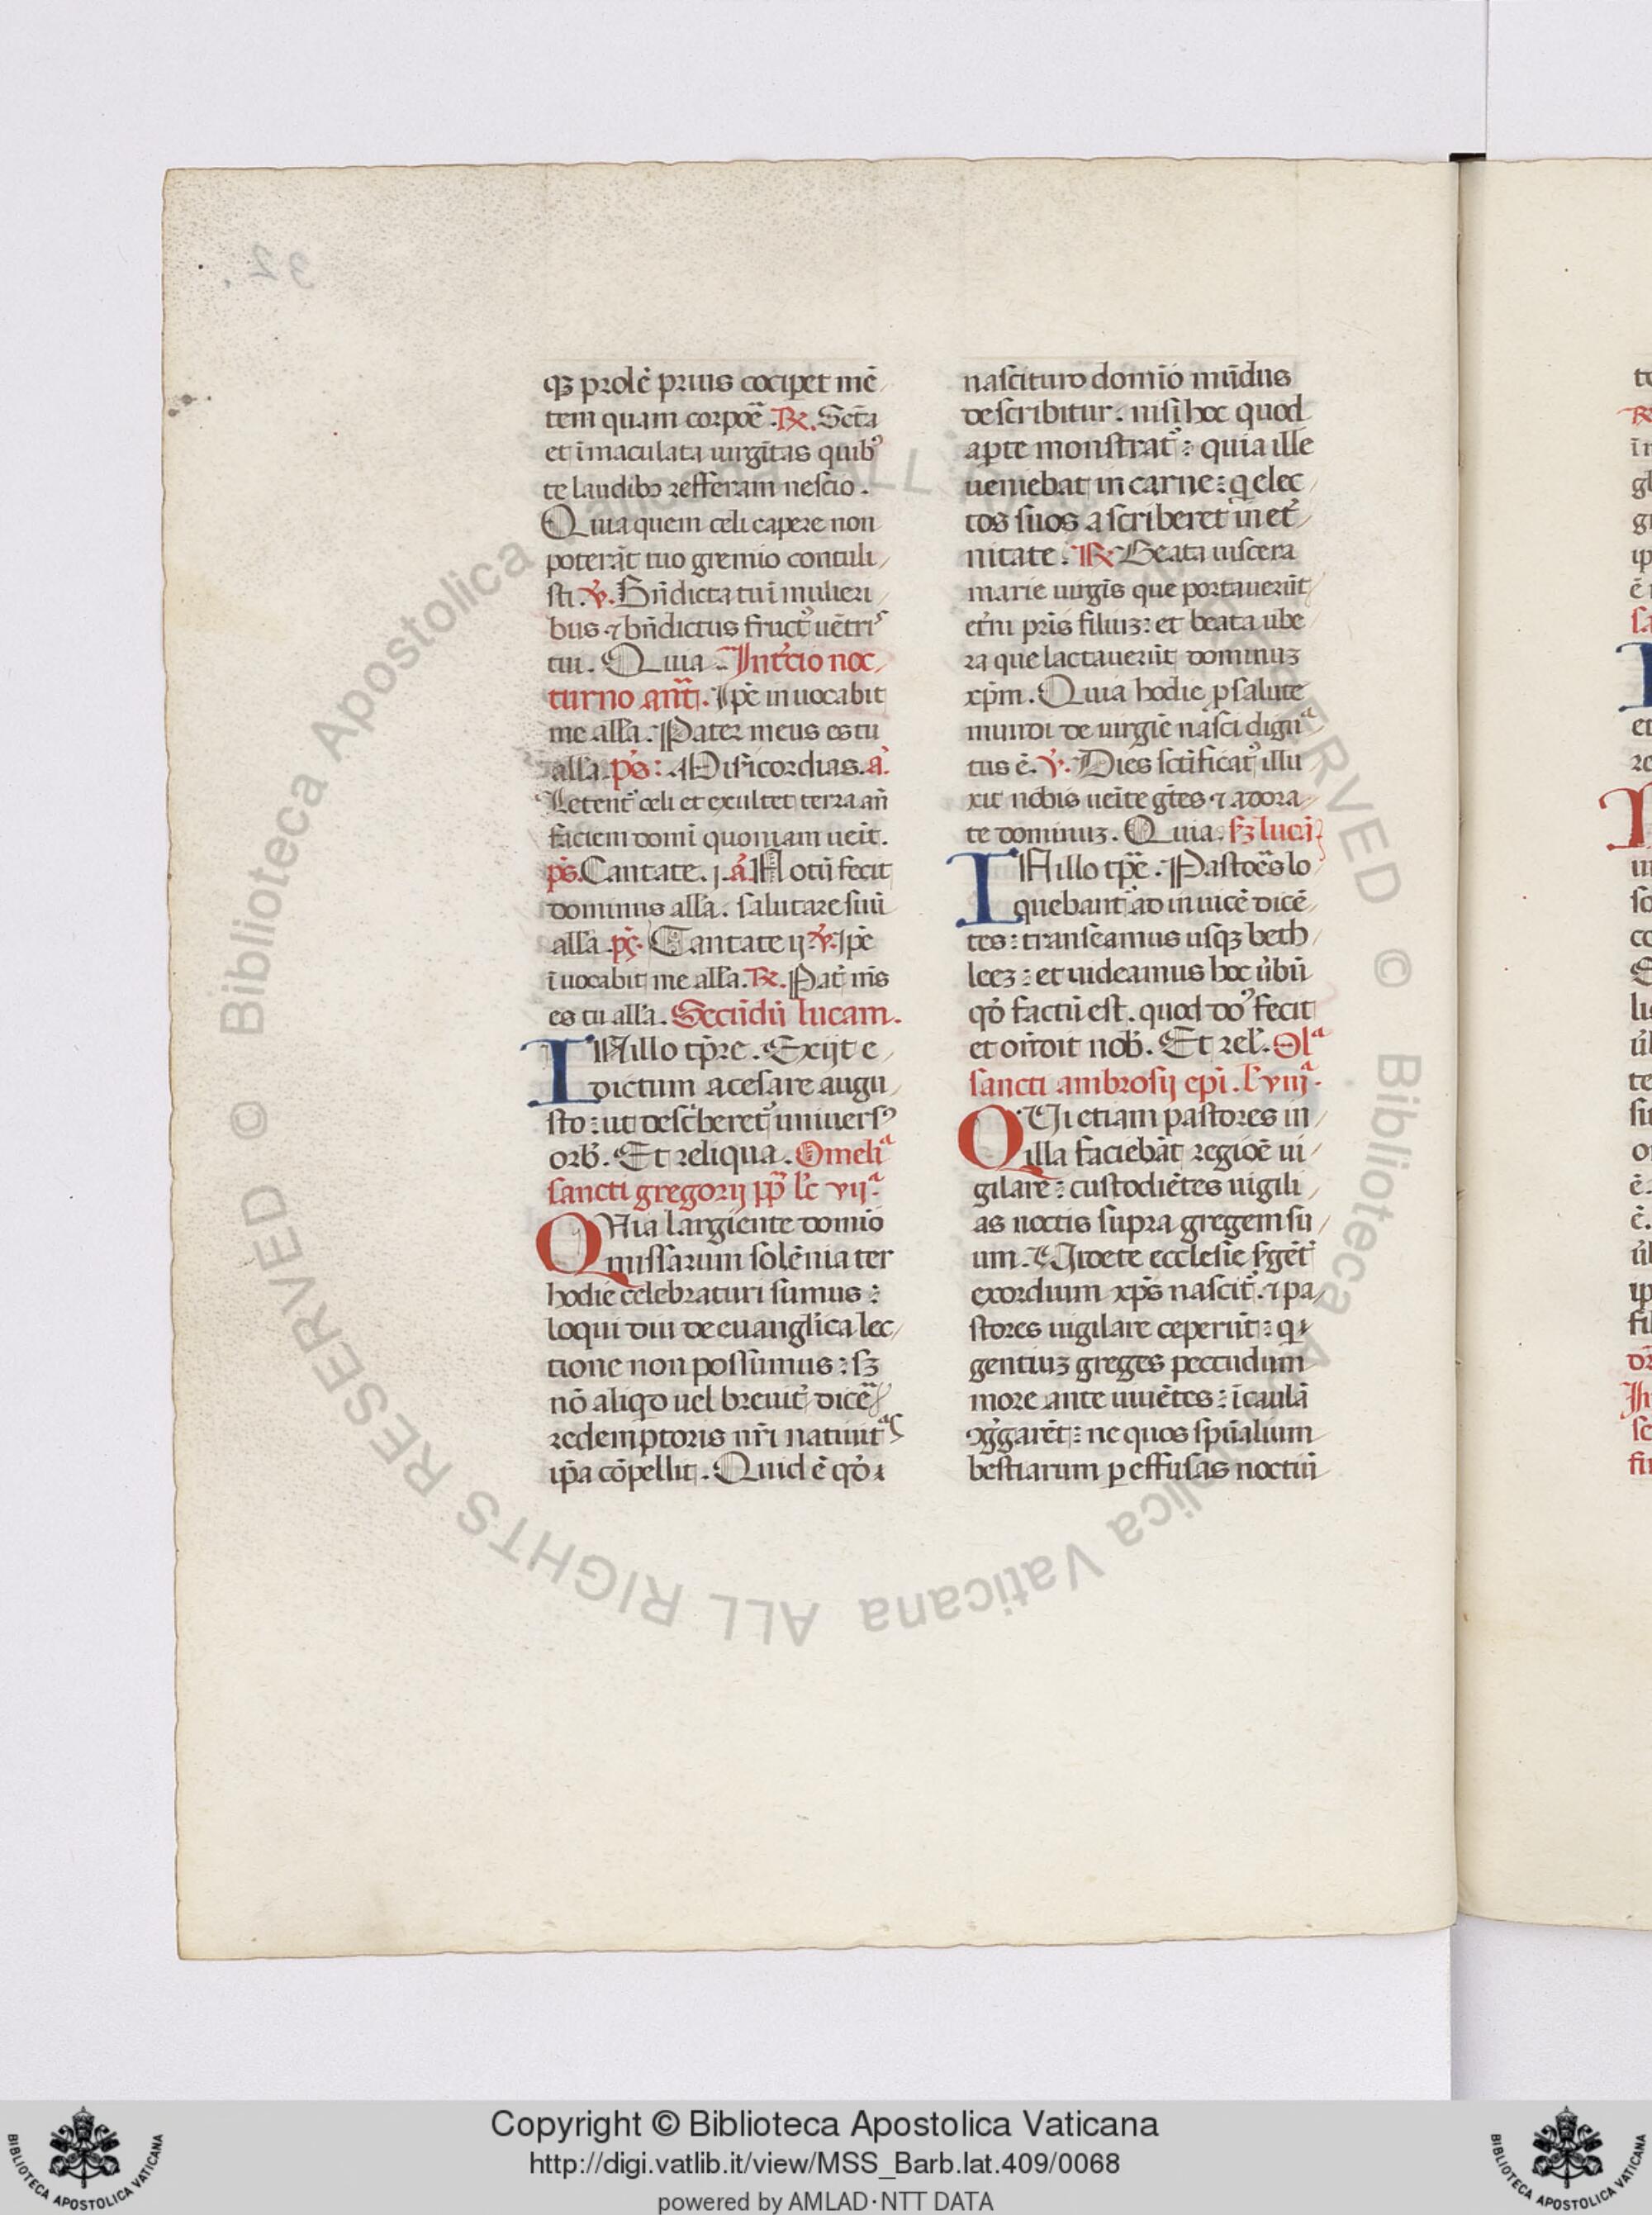 qȝ prolē prius cōcipet mē
tem quam corpoē. R̃. Sc̄ta
et īmaculata uirgītas quib⁹
te laudibꝫ refferam nescio.
Quia quem celi capere non
poterāt tuo gremio contuli
sti. v̓. Bn̄dicta tu ī mulieri
bus ⁊ bn̄dictus fruct⁹ uētris
tui. Quia. In t̓cio noc
turno an̄t. Ip̄e inuocabit
me all̓a. Pater meus es tu
all̓a. ps̓: Mis̓icordias. a̓.
Letent᷑ celi et exultet terra an̄
faciem domī quoniam ueīt.
ps̓. Cantate. j. a̓. Notū fecit
dominus all̓a. salutare suū
all̓a. ps̓. Cantate ij v̓. Ip̄e
īuocabit me all̓a. R̃. Pat̓ m̄s
es tu all̓a. Secūdū lucam.
INillo tp̄re. Exijt e
dictum a cesare augu
sto: ut desc̓beret᷑ uniuers⁹
orb̓. Et reliqua. Omelia
sancti gregorij pp̄ lc̄ vija.
QUia largiente domīo
missarum solēnia ter
hodie celebraturi sumus:
loqui diu de euangl̓ica lec
tione non possumus: sꝫ
nō aliqd uel breuit̓ dicē
redemptoris nr̄i natiuitas
ip̄a cōpellit. Quid ē qd̓ ı
nascituro domīo mūdus
describitur. nisi hoc quod
apte monstrat᷑: quia ille
ueniebat in carne: q elec
tos suos ascriberet in et̓
nitate. R̃. Beata uiscera
marie uirgīs que portauerūt
et̓ni pr̄is filiuꝫ: et beata ube
ra que lactauerūt dominuꝫ
xp̄m. Quia hodie ꝑ salute
mundi de uirgīe nasci digna
tus ē. v̓. Dies sc̄tificat⁹ illu
xit nobis ueīte gētes ⁊ adora
te dominuꝫ. Quia. sꝫ lucā
INillo tp̄e. Pastoēs lo
quebant᷑ ad inuicē dicē
tes: transeamus usqꝫ beth
leeꝫ: et uideamus hoc u̓bū
qd̓ factū est. quod do⁹ fecit
et on̄dit nob̓. Et rel̓. Ola
sancti ambrosij epī. l̓ viija.
QUi etiam pastores in
illa faciebāt regiōē ui
gilare: custodiētes uigili
as noctis supra gregem su
um. Uidete ecclesie s̓gēt᷑
exordium xp̄s nascit᷑. ⁊ pa
stores uigilare ceperūt: qi
gentiuꝫ greges peccudum
more ante uiuētes: ī caulā
ꝯg̓garēt: ne quos spūalium
bestiarum ꝑ effusas noctiū
Copyright © Biblioteca Apostolica Vaticana
http://digi.vatlib.it/view/MSS_Barb.lat.409/0068
powered by AMLAD·NTT DATA